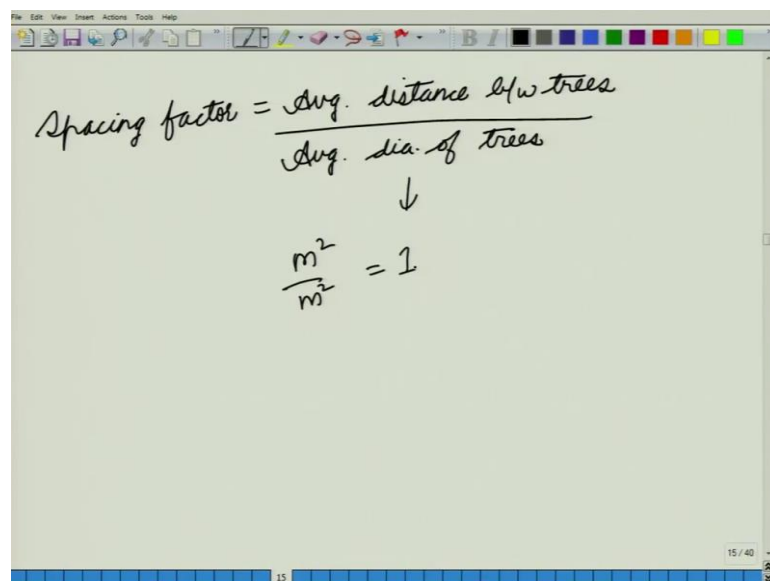 File Edit View Insert Actions Tools Help
B I
Spacing factor = Avg. distance b/w trees
Avg. dia. of trees
↓
m²
m² = 1
15 / 40
15